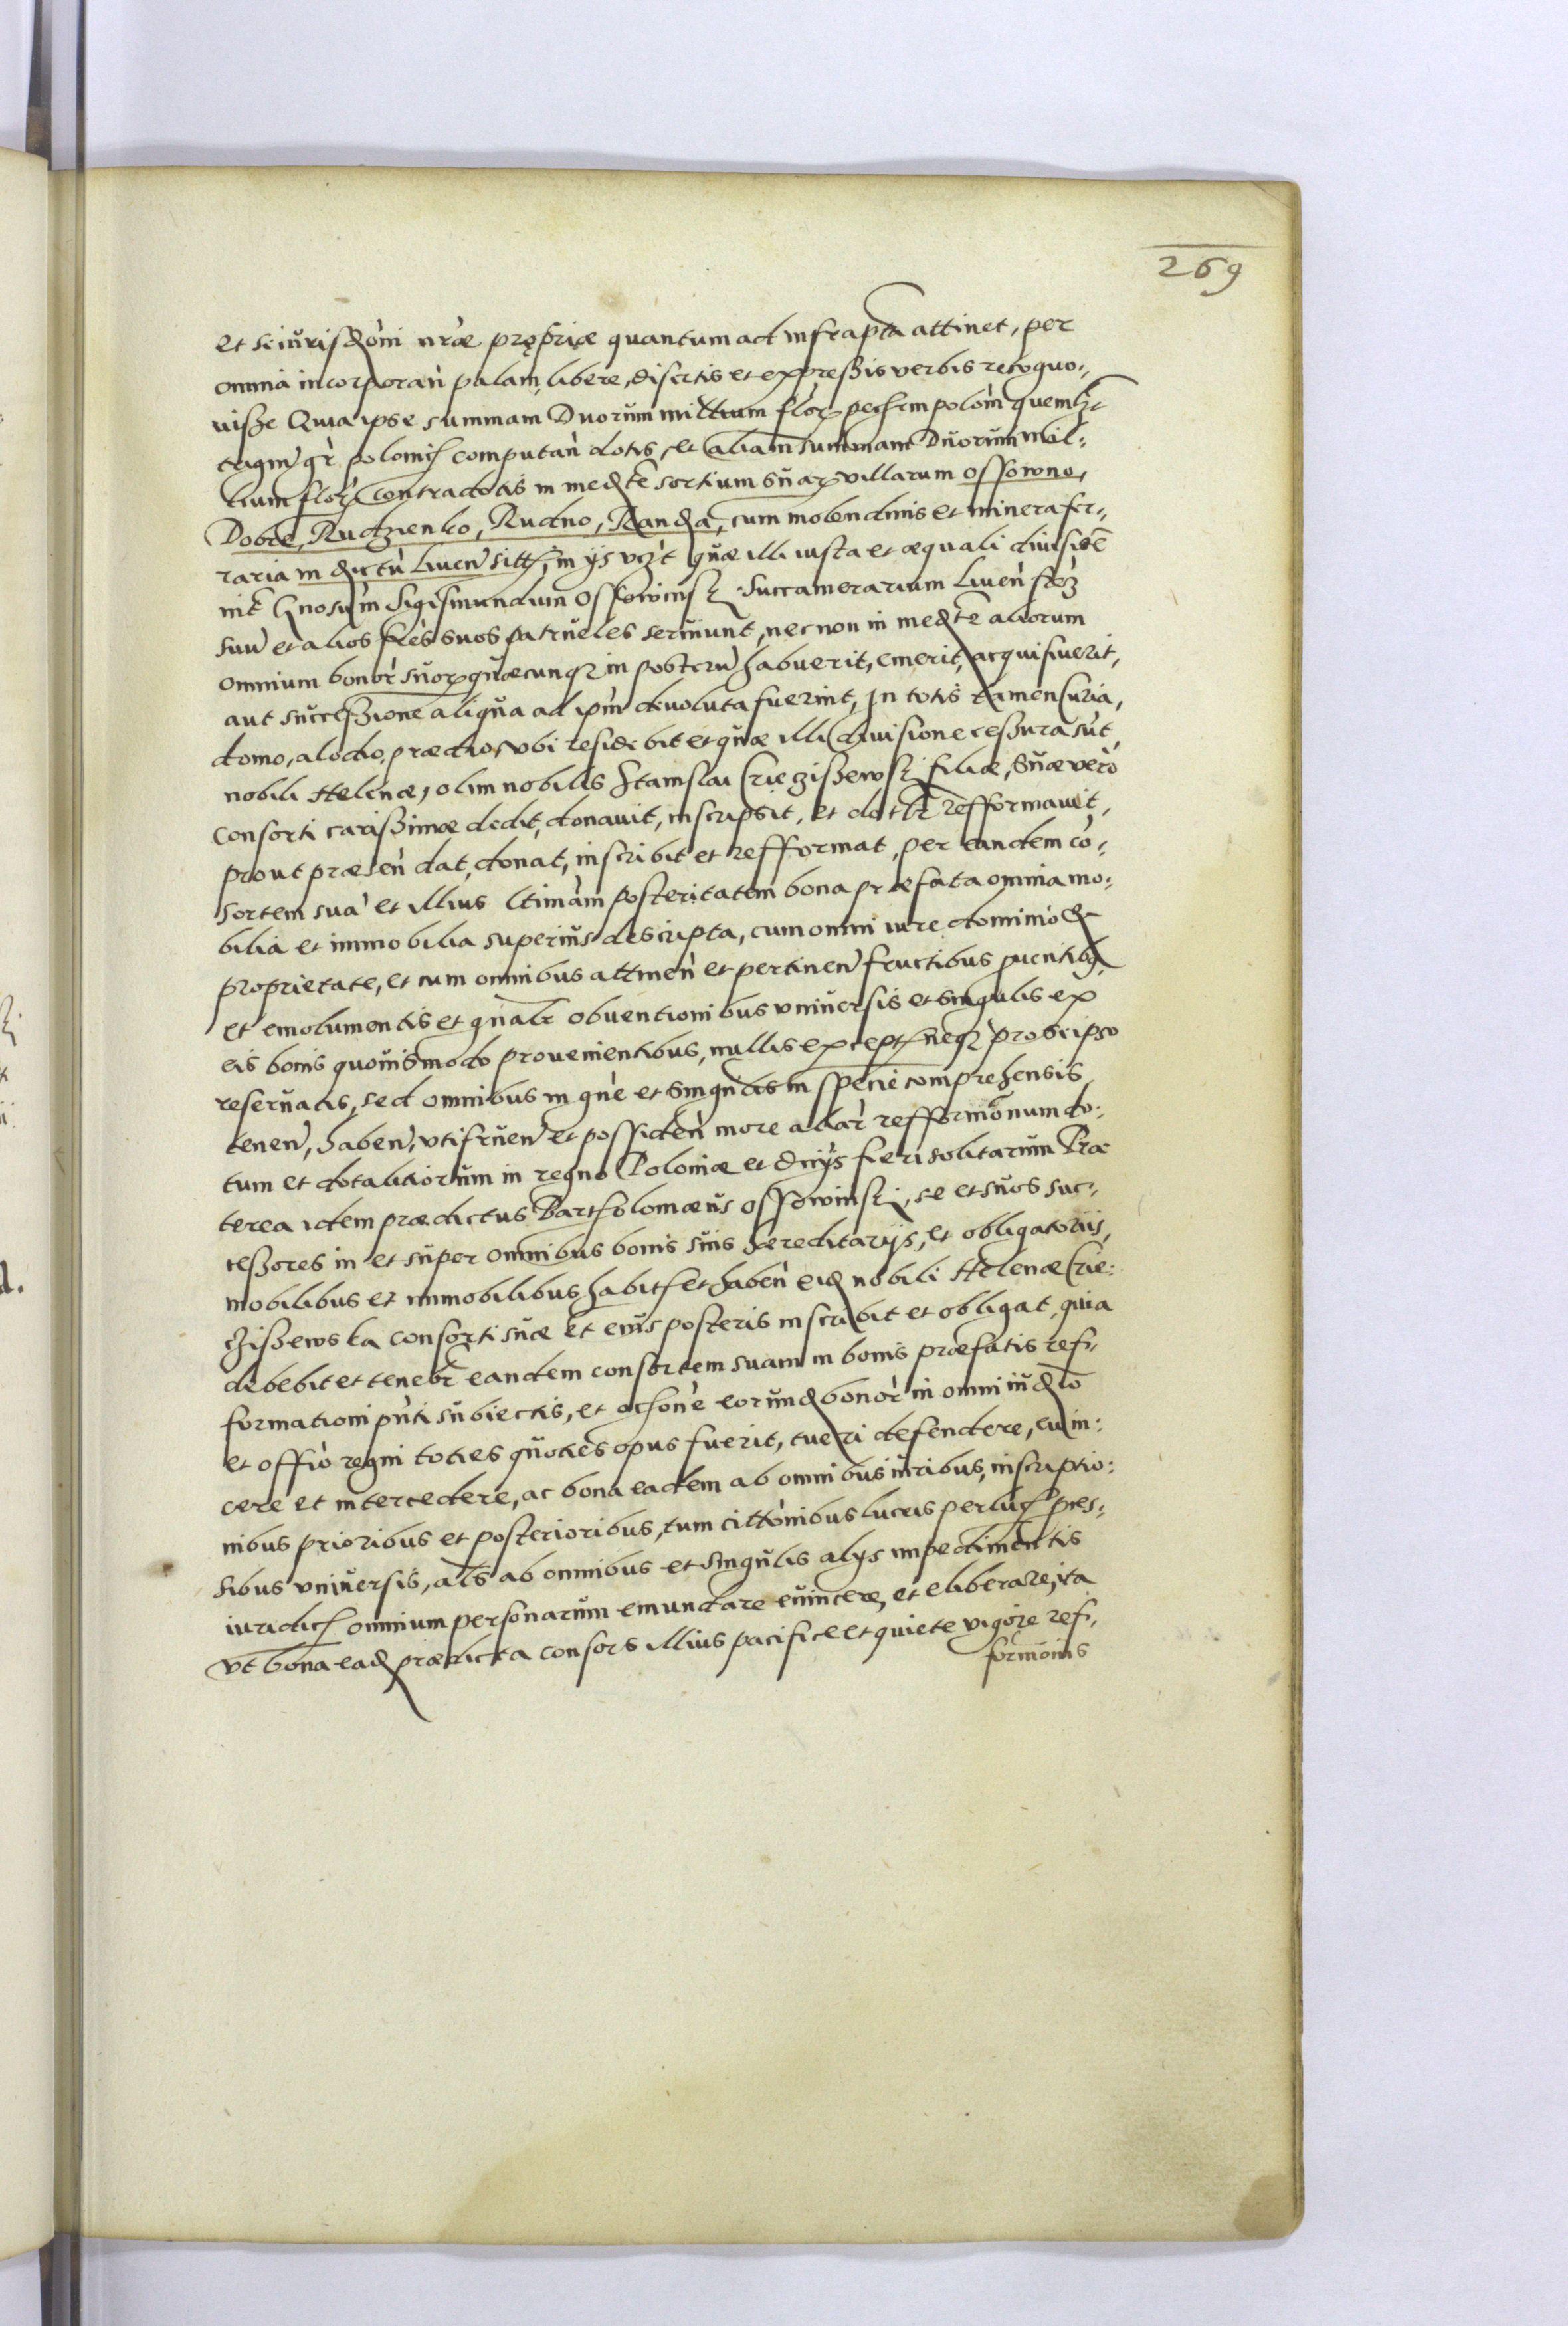 269
et se iurisdoni nrae propriae quantum ad infrapta attinet, per
omnia incorporan palam, libere, disertis et expressis verbis recogno,,
uisse Quia ipse summam Duorum millium flor pec in polom quemlz
trigin gr polonis computan dotis, et aliam summam Duorum mil:
lium flor contradotis in medte sortium suar villarum Ossowno,
Dobre, Rudzienko, Rudno, Randa, cum molendinis et minera fer,,
raria in dictu Liuen sitt, in ys vczt quae illi iusta et aequali diuisioe
inte Gnosum Sigismundum Ossowinsk Succamerarium Liuen
suu et alios fres suos patrueles seruiunt, nec non in medte aliorum
omnium bonor suor quaecunq in posteru habuerit, emerit, acquisiuerit,
aut successione aliqua ad ipm deuoluta fuerint, In totis tamen Curia,
domo, alodio, praedio, vbi residebit et quae illi diuisione cessura sut
nobili Helenae, olim nobilis Stanislai Criezissewsk filiae, Suae vero
consorti carissimae dedit, donauit, inscripsit, et dotlr refformauit,
prout praesen dat, donat, inscribit et refformat, per eandem co:
sortem sua et illius ltimam posteritatem bona praefata omnia mo:
bilia et immobilia superius descripta, cum omni iure dominio &
proprietate, et cum omnibus attinen et pertinen fructibus puentibq
et emolumentis et gnalr obuentionibus vniuersis et singulis ex
eis bonis quouismodo prouenientibus, nullis except neq pro se ipso
reseruatis, sed omnibus in gne et singulis in specie comprehensis
tenen, haben, vtifruen et possiden more aliar refformonum do:
tum et dotalitiorum in regno Poloniae et dniys fieri solitarum Prae
terea idem praedictus Bartholomaeus Ossowinsk, se et suos suc,,
cessores in et super omnibus bonis suis haereditariis, et obligatoriis,
mobilibus et immobilibus habit et haben eid nobili Helenae Crie:
zissewska consorti suae et eius posteris inscribit et obligat, quia
debebit et tenebr eandem consortem suam in bonis praefatis ref,,
formationi pnti subiectis, et acsone eorund bonor in omni iudio
et offio regni toties quoties opus fuerit, tueri defendere, euin:
cere et intercedere, ac bona eadem ab omnibus iuribus, inscriptio:
nibus prioribus et posterioribus, tum cittonibus lucris perluc pces,,
sibus vniuersis, als ab omnibus et singulis alys impedimentis
iuridic omnium personarum emundare euincere, et eliberare, ita
vt bona ead praedicta consors illius pacifice et quiete vigore ref,,
formonis